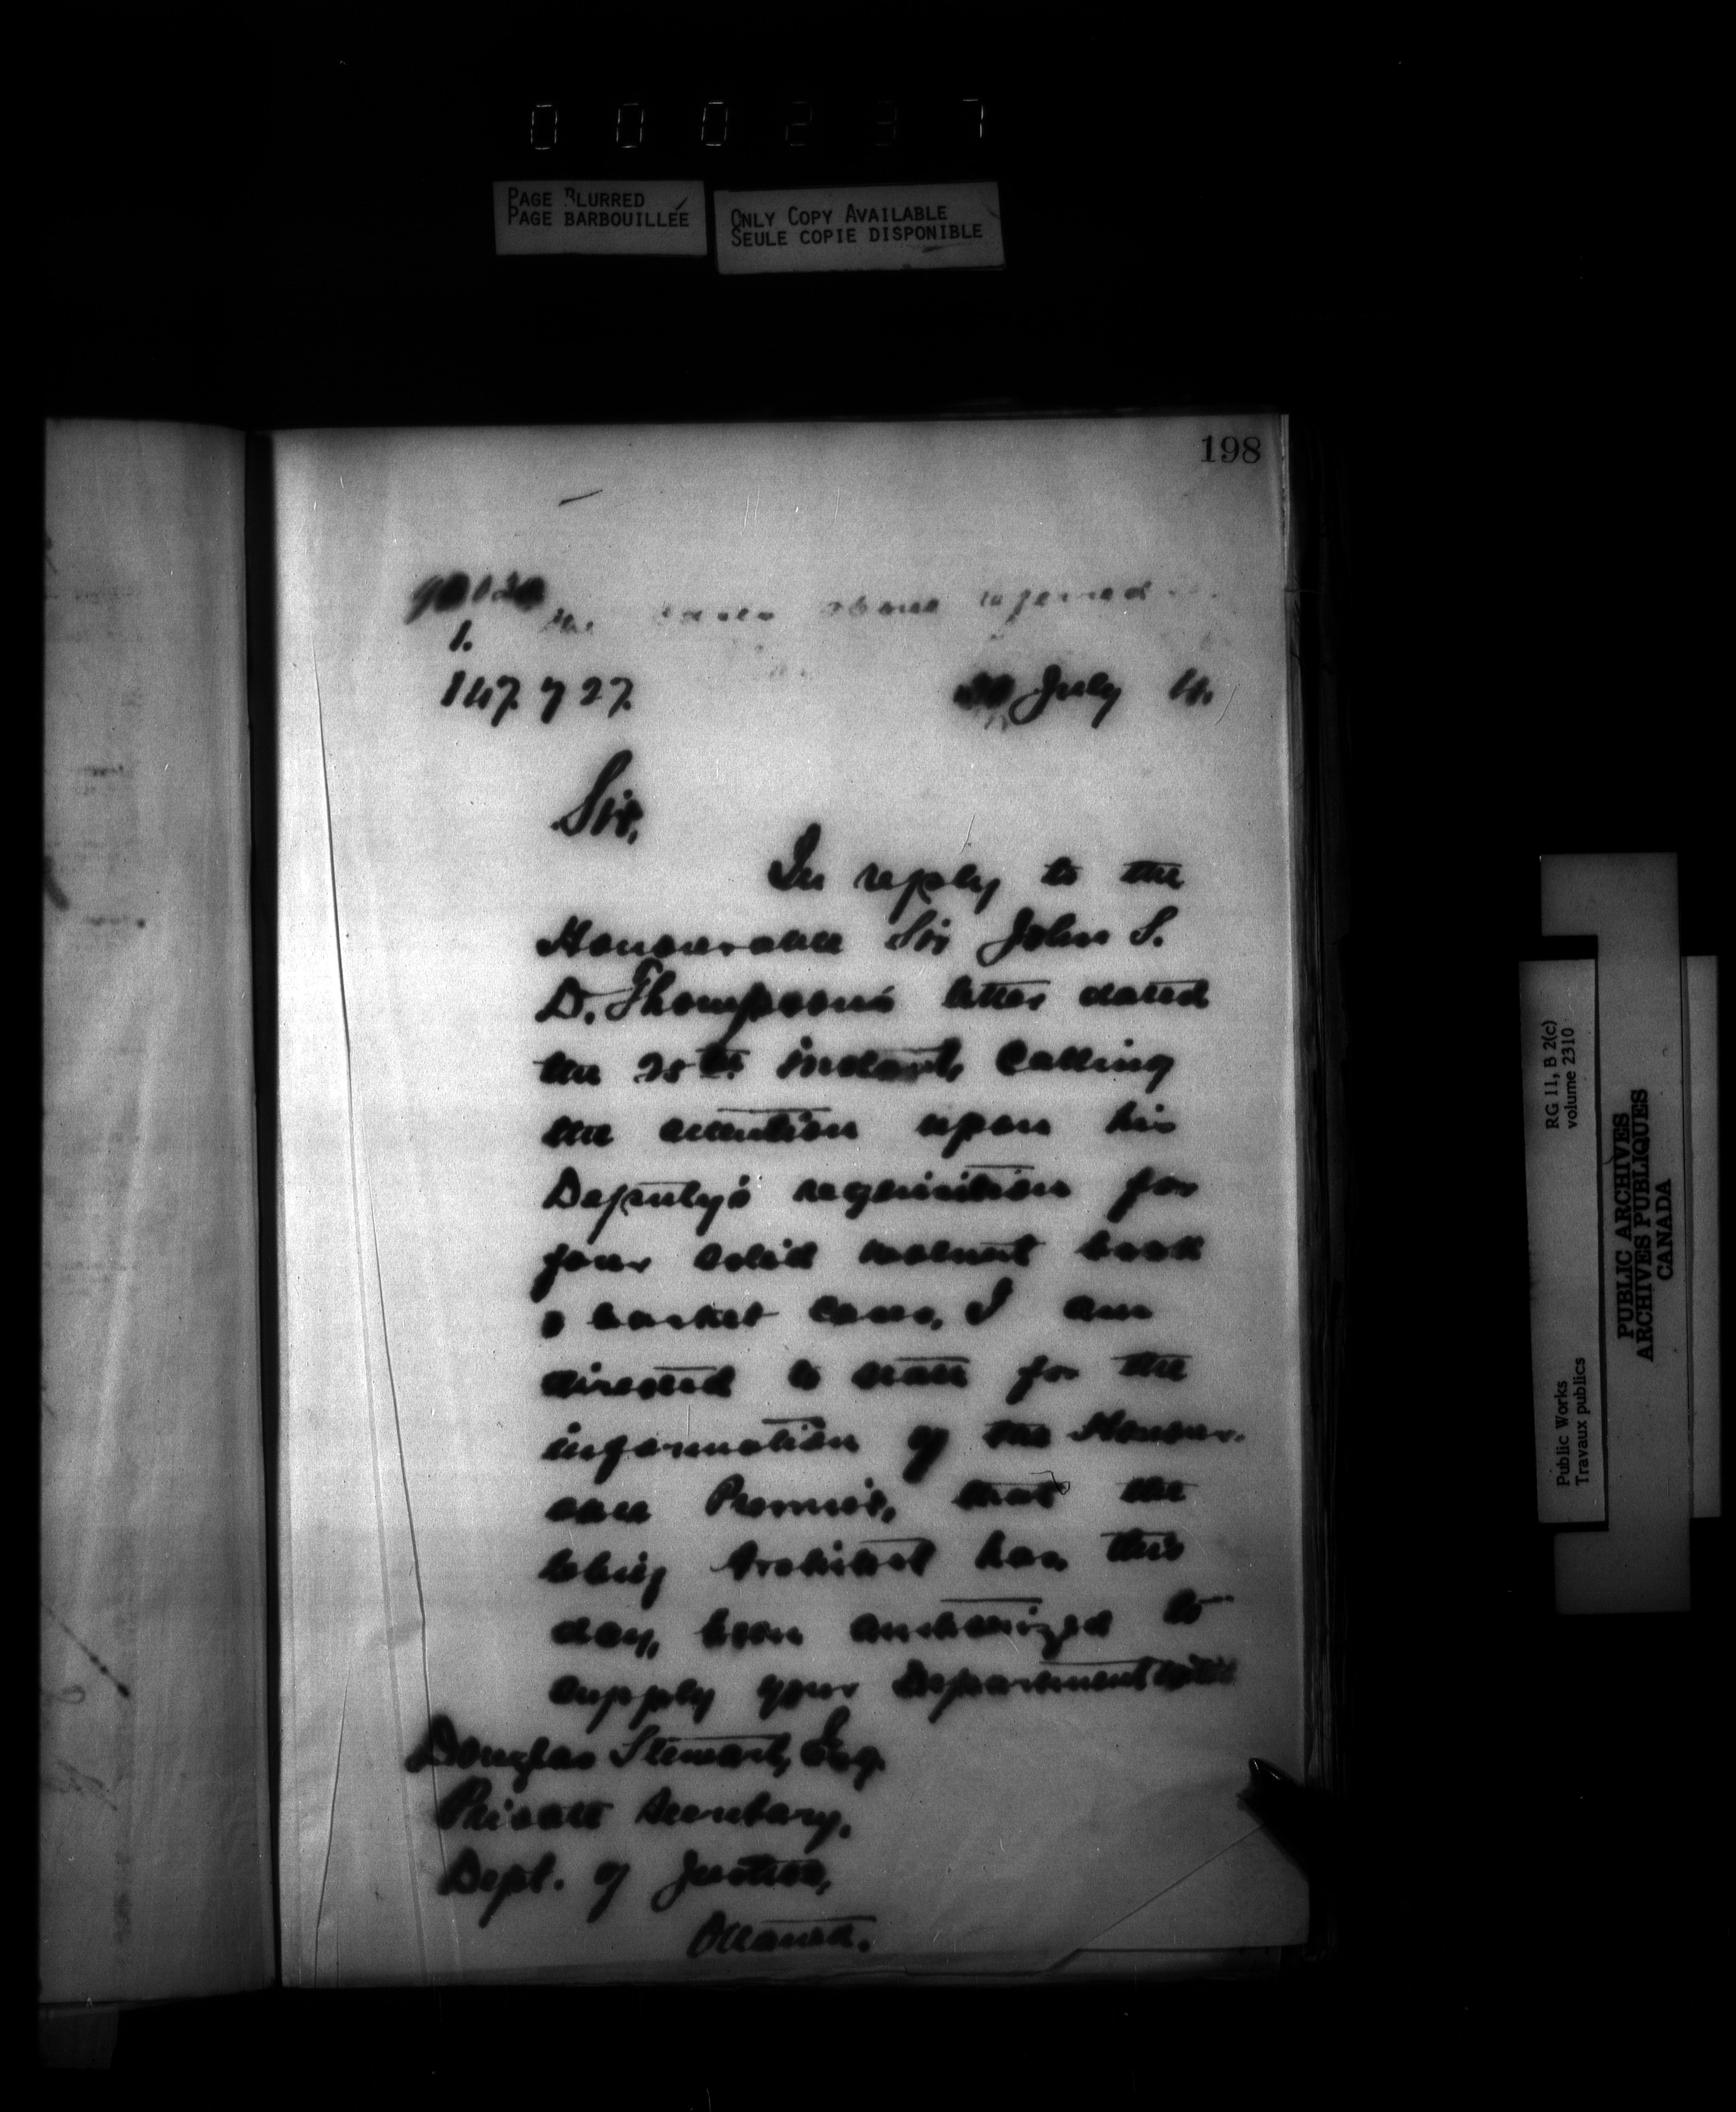 0 0 0 2 3 7
PAGE BLURRED
PAGE BARBOUILLÉE
ONLY COPY AVAILABLE
SEULE COPIE DISPONIBLE
198
the above referred
1.
147.727.
July
Sir,
In reply to the
Honourable Sir John S.
D. Thompson's letter dated
the 28th instant, calling
the attention upon his
Deputy's requisition for
four solid walnut book
& basket cases, I am
directed to state for the
information of the Honour-
able Premier, that the
Chief Architect has, this
day, been authorized to
supply your Department with
Douglas Stewart, Esq.
Private Secretary,
Dept. of Justice,
Ottawa.
RG 11, B 2(c)
volume 2310
Public Works
Travaux publics
PUBLIC ARCHIVES
ARCHIVES PUBLIQUES
CANADA